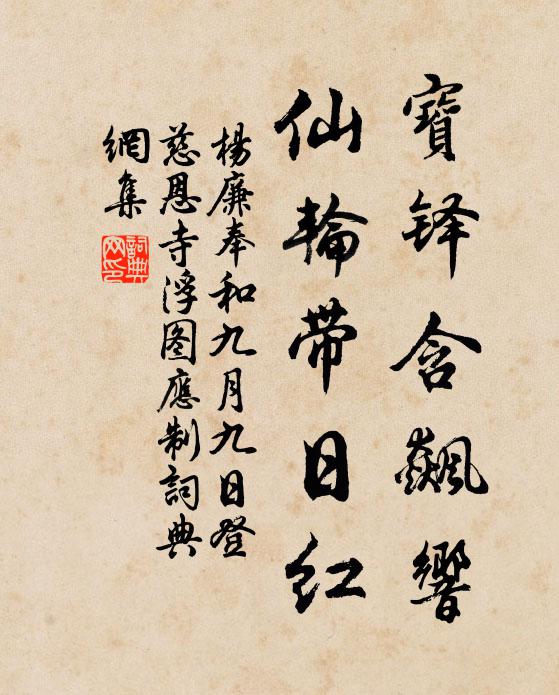 寶铎含飆響
仙輪帶日紅
楊廉奉和九月九日登
慈恩寺浮图應制詞典
網集
詞典
网印